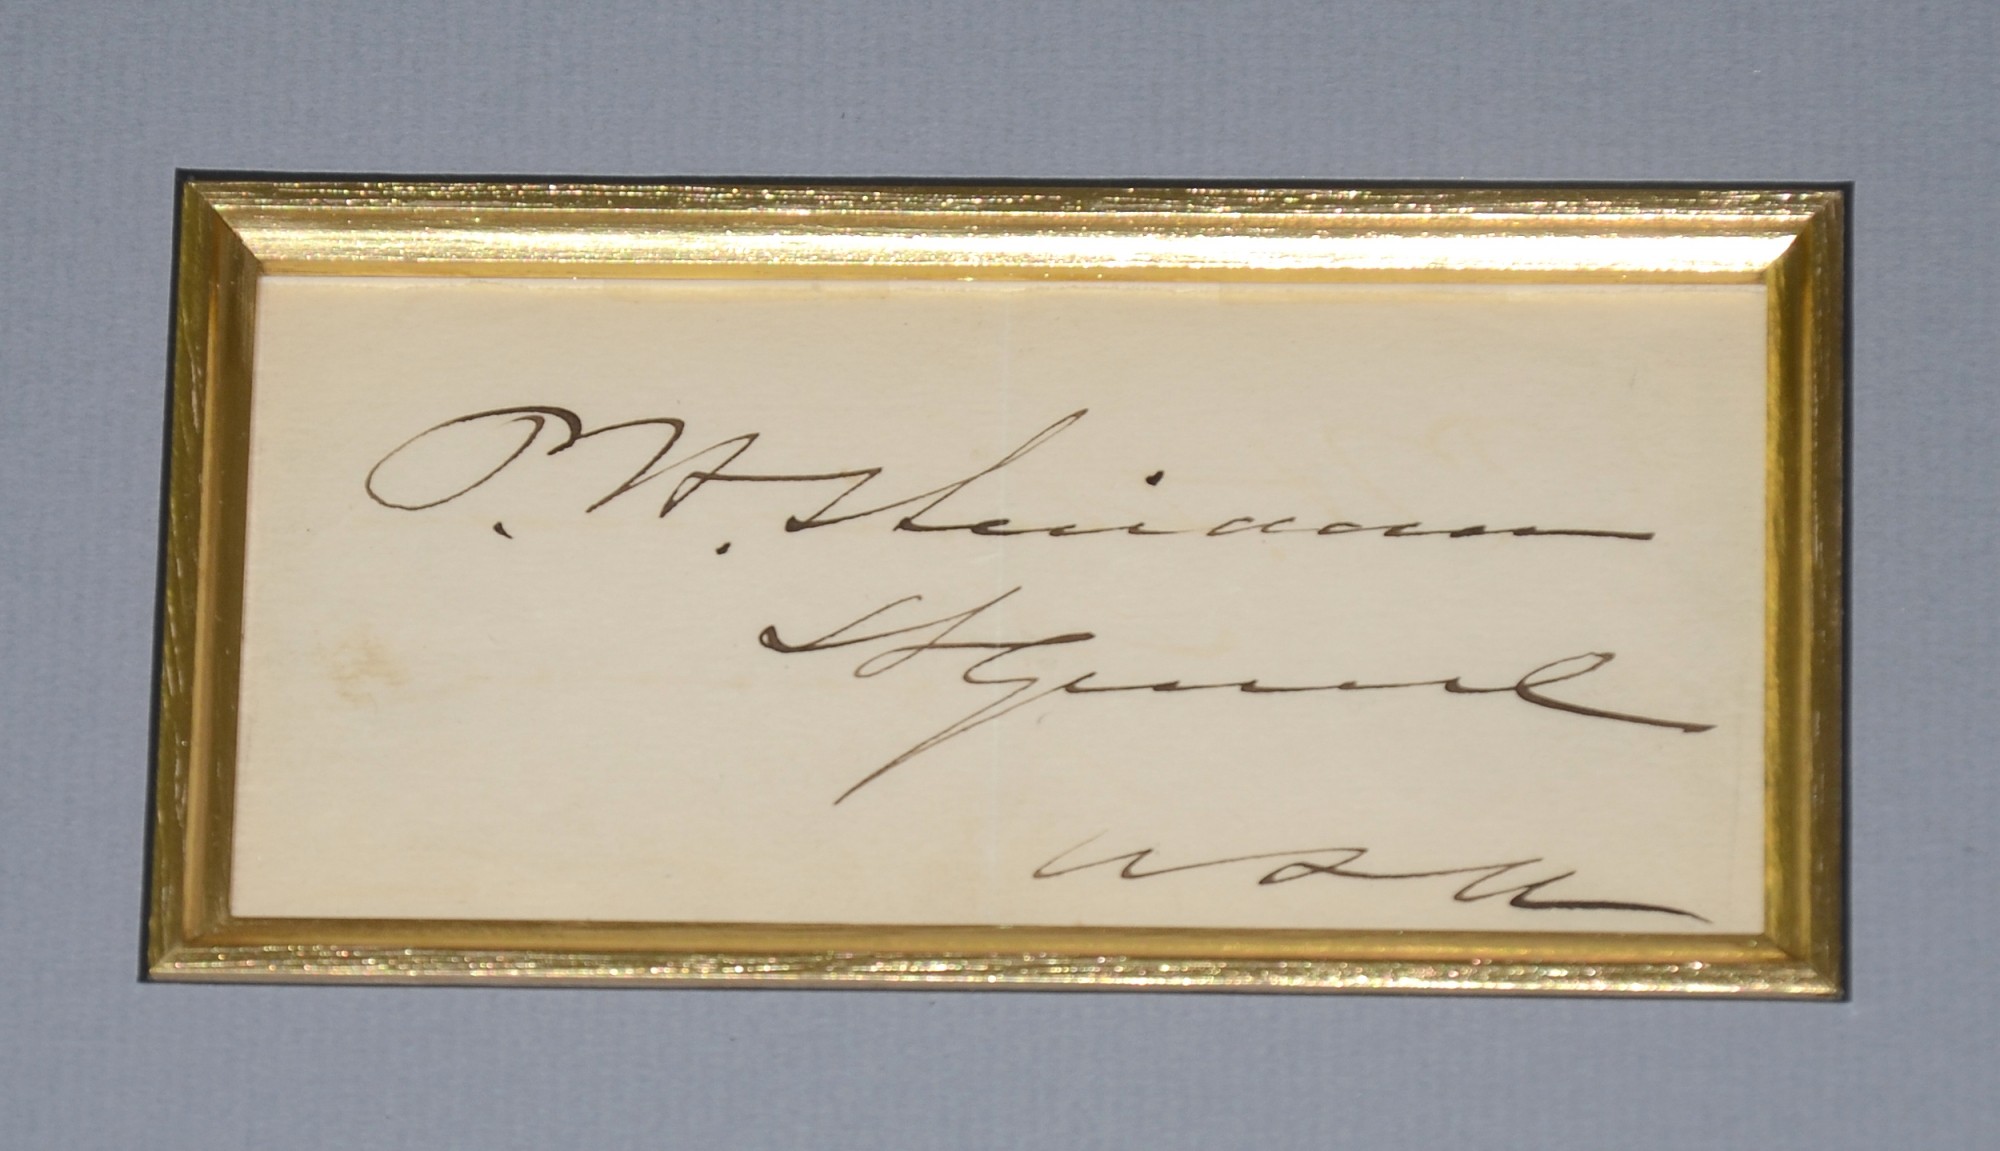 P. H. Sheridan
Lt General
U S A